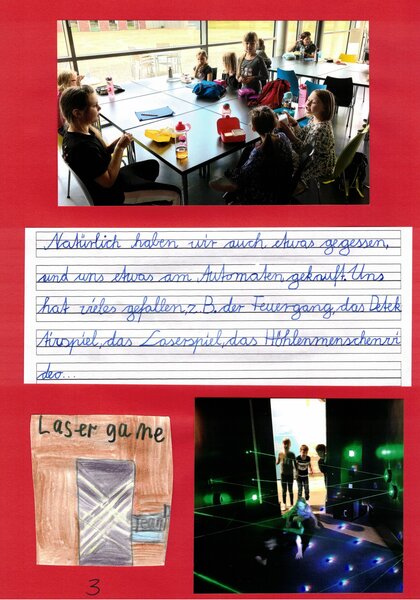 Natürlich haben wir auch etwas gegessen,
und uns etwas am Automaten gekauft. Uns
hat vieles gefallen, z. B. der Feuergang, das Detek
tivspiel, das Laserspiel, das Höhlenmenschenvi
deo...
Laser game
Team
3